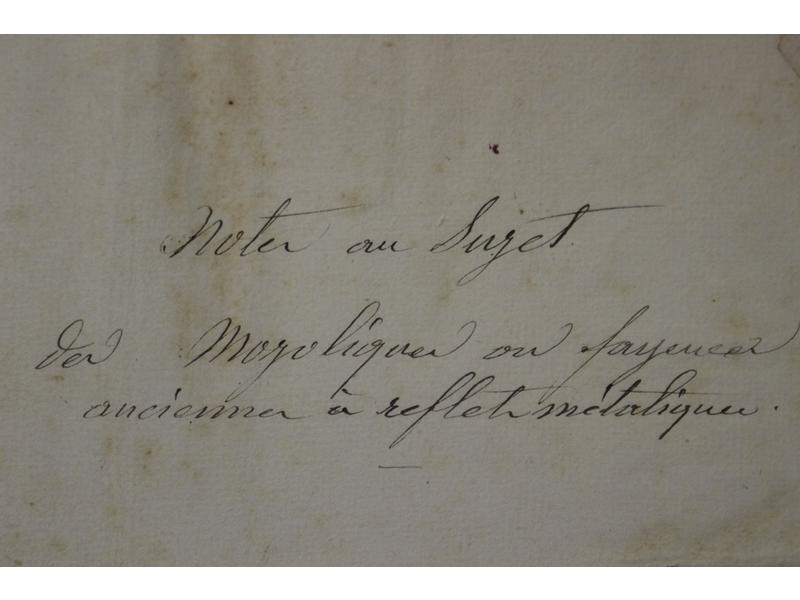 Notes au Sujet
des Mozoliques ou fayences
anciennes à reflets métaliques.